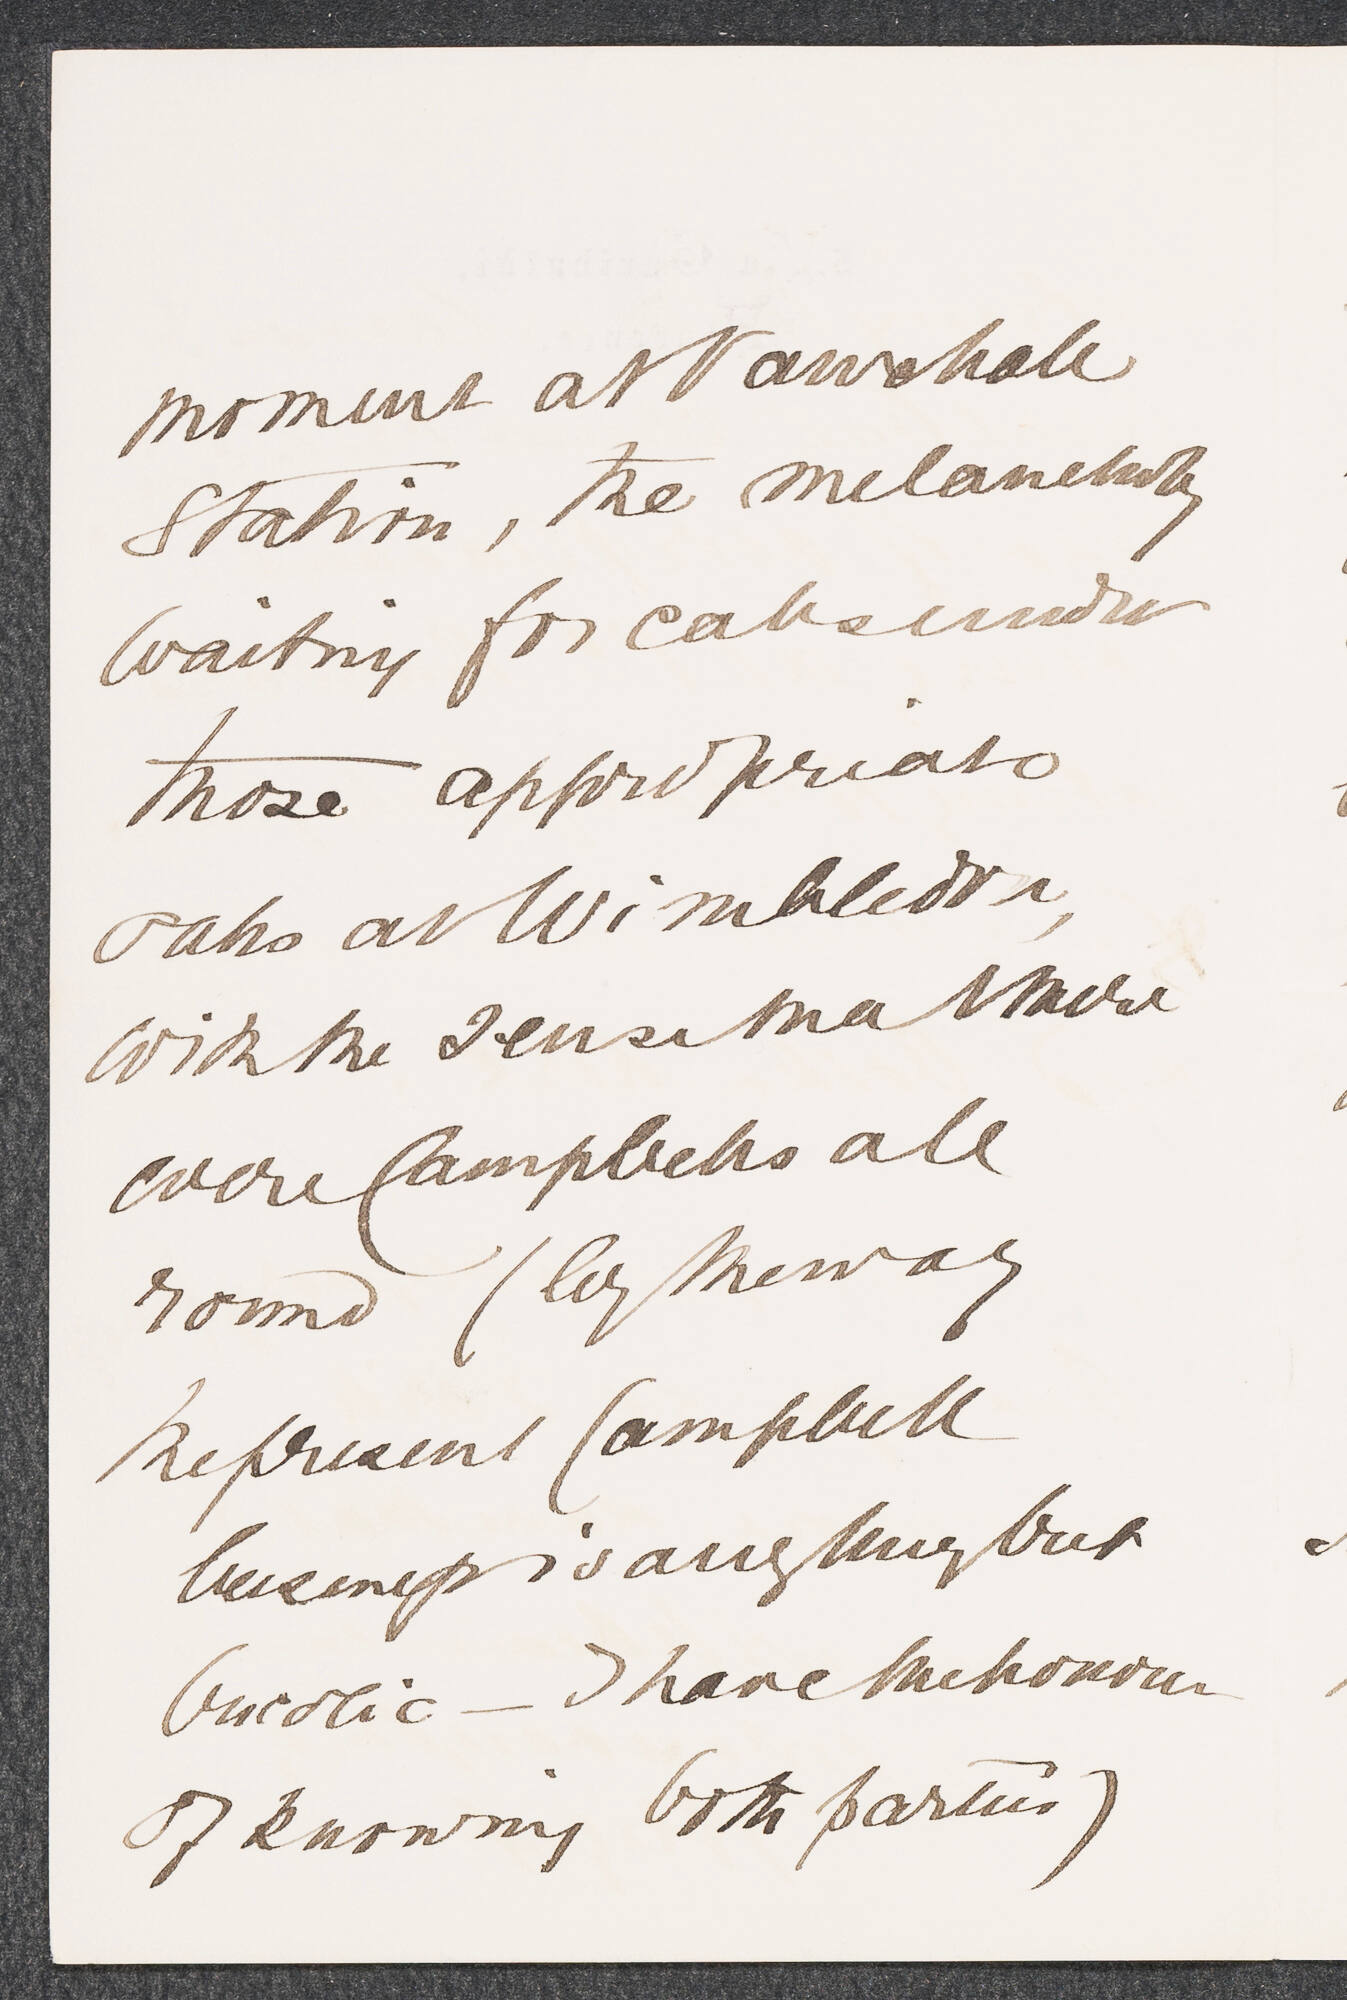 moment at Vauxhall
Station, the melancholy
waiting for cabs under
those appropriate
oaks at Wimbledon,
with the sense that there
were Campbells all
round (by the way
the present Campbell
business is anything but
bucolic — I have the honour
of knowing both parties)